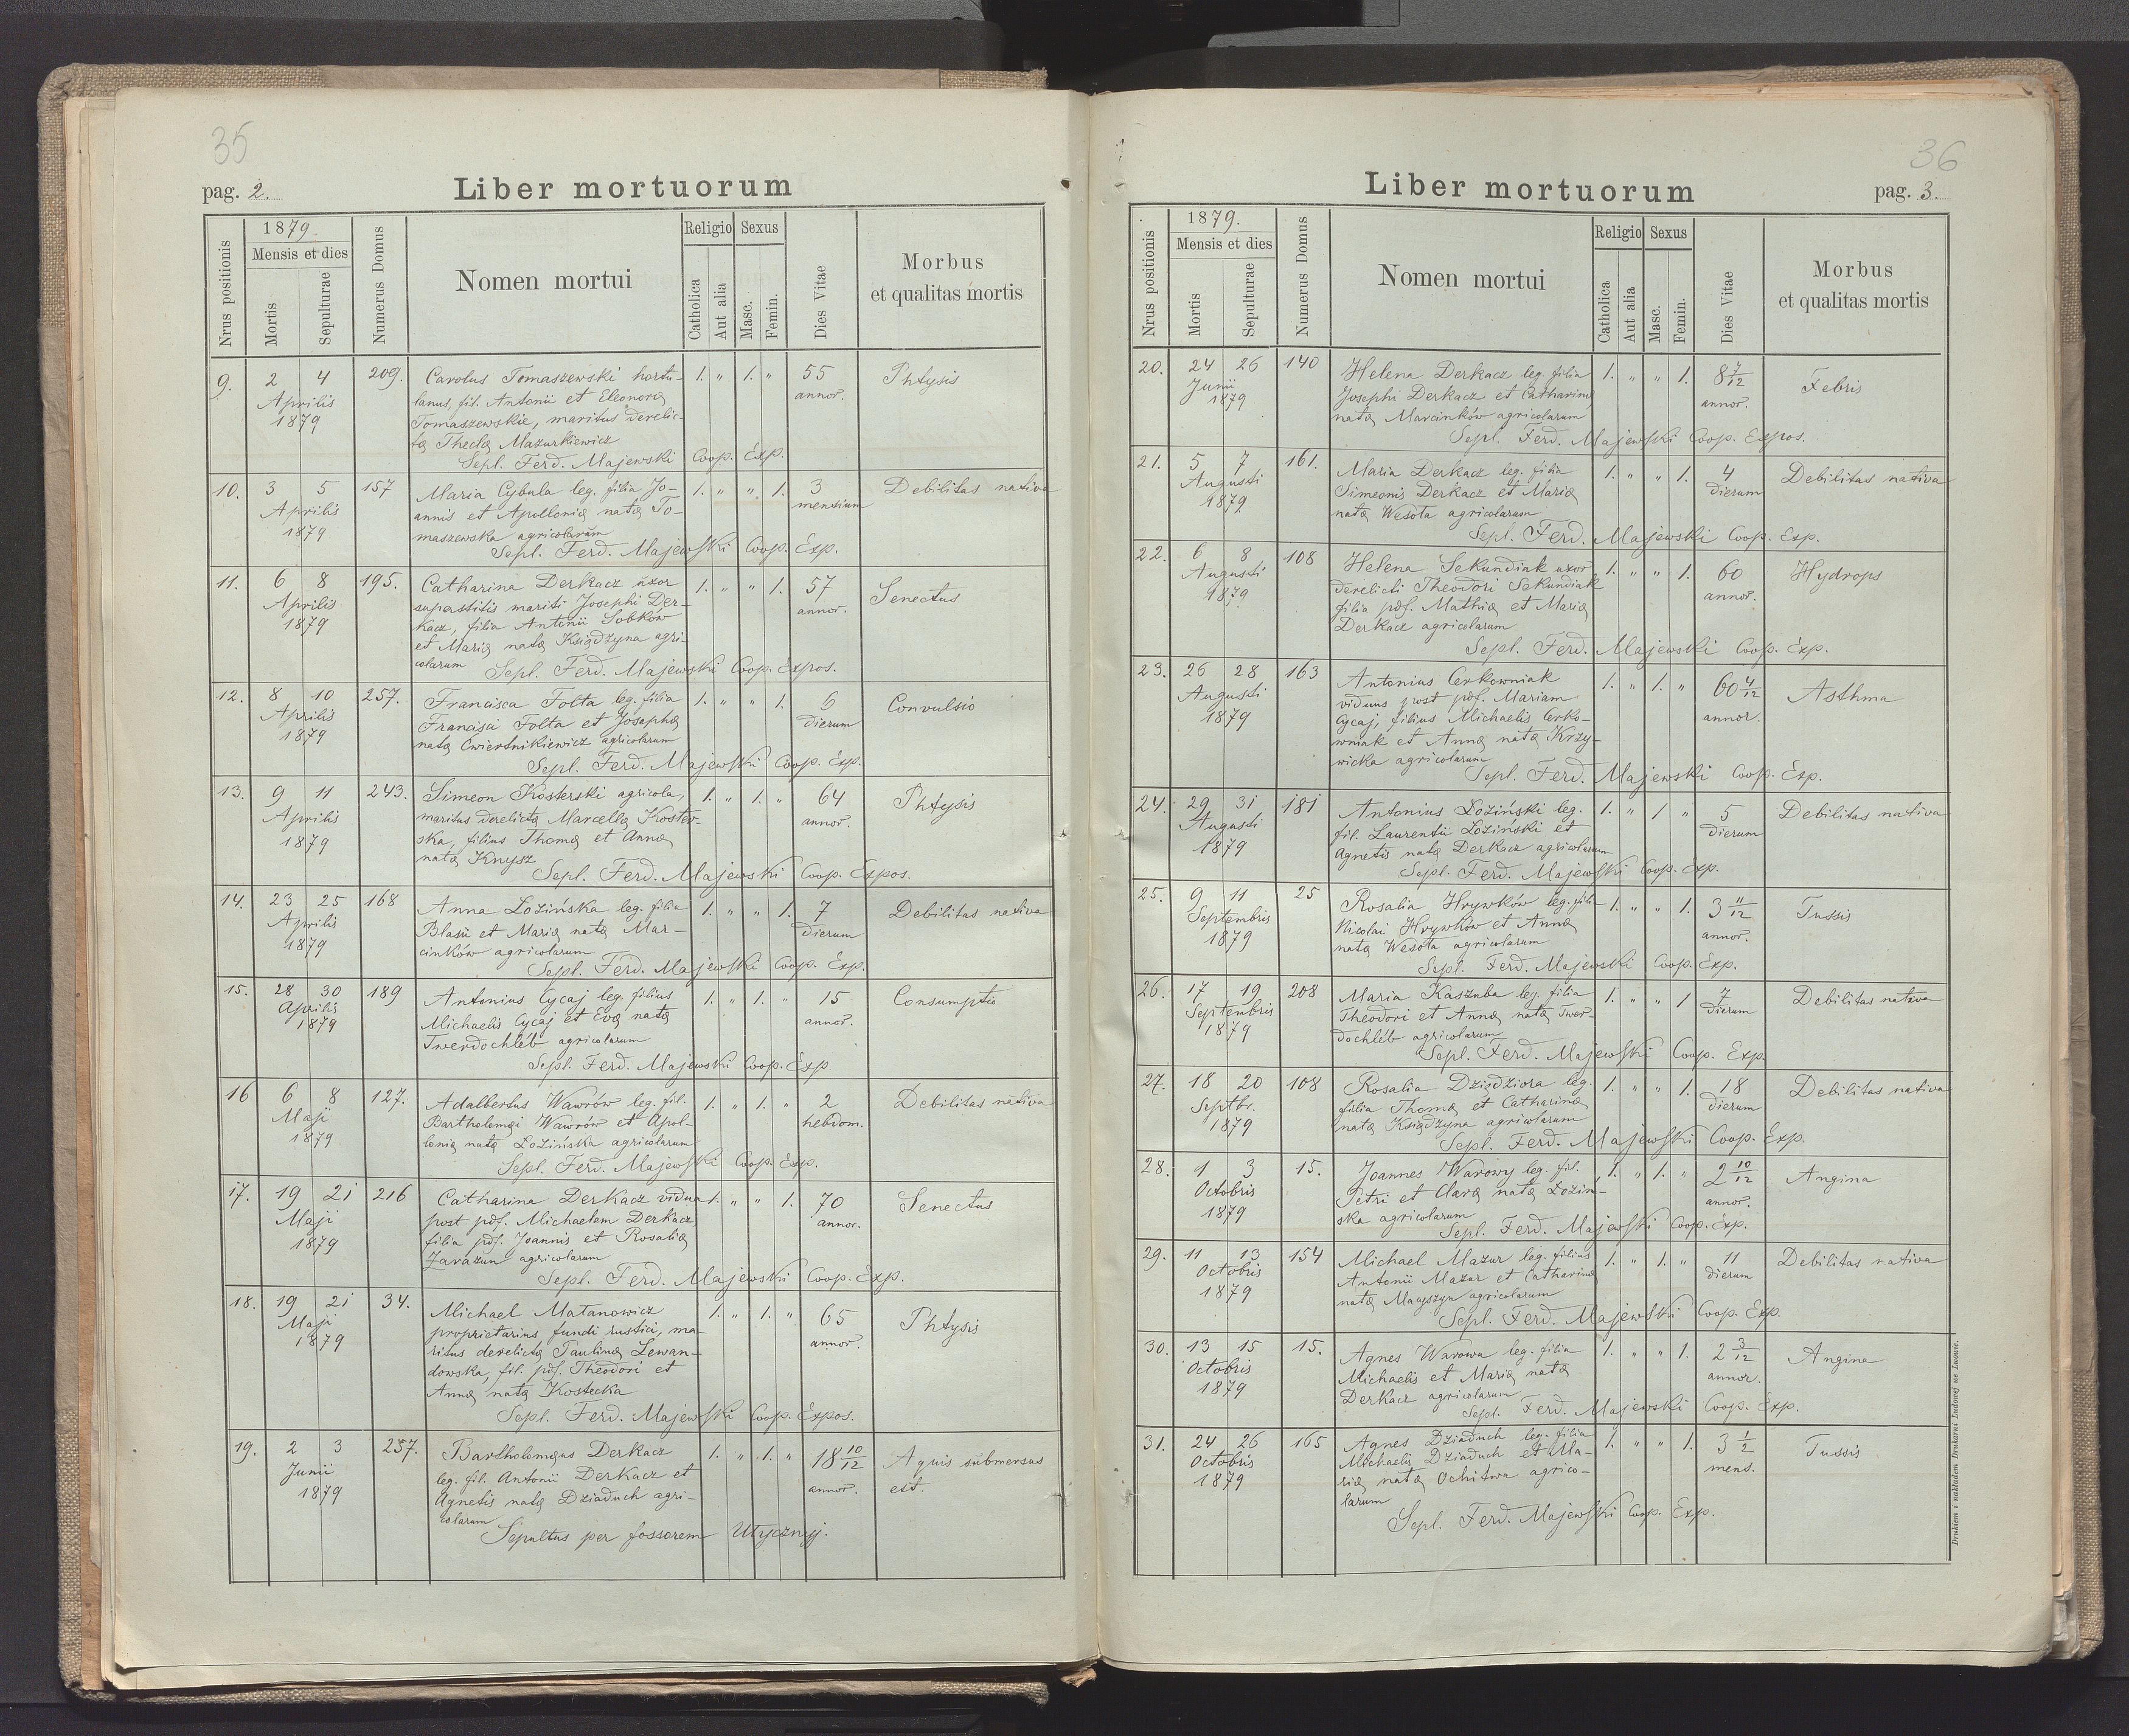 35
pag. 2.
Liber mortuorum
Nrus positionis
1879.
Mensis et dies
Mortis
Sepulturae
Numerus Domus
Nomen mortui
Religio
Catholica
Aut alia
Sexus
Masc.
Femin.
Dies Vitae
Morbus
et qualitas mortis
9. 2 4 209. Carolus Tomaszewski hortu- 1. " 1. " 55 Phtysis
Aprilis lanus, fil. Antonii et Eleonorę annor.
1879 Tomaszewskie, maritus derelic-
tę Theclę Mazurkiewicz
Sepl. Ferd. Majewski Coop. Exp.
10. 3 5 157 Maria Cybula leg. filia Jo- 1. " " 1. 3 Debilitas nativa
Aprilis annis et Apollonię natę To- mensium
1879 maszewska agricolarum
Sepl. Ferd. Majewski Coop. Exp.
11. 6 8 195. Catharina Derkacz uxor 1. " " 1. 57 Senectus
Aprilis superstitis mariti Josephi Der- annor.
1879 kacz, filia Antonii Sobków
et Marię natę Księdzyna agri-
colarum Sepl. Ferd. Majewski Coop. Expos.
12. 8 10 257. Francisca Folta leg. filia 1. " " 1. 6 Convulsio
Aprilis Francisci Folta et Josephę dierum
1879 natę Cwiertnikiewicz agricolarum
Sepl. Ferd. Majewski Coop. Exp.
13. 9 11 243. Simeon Kosterski agricola, 1. " 1. " 64 Phtysis
Aprilis maritus derelictę Marcellę Koster- annor.
1879 ska, filius Thomę et Annę
natę Knysz
Sepl. Ferd. Majewski Coop. Expos.
14. 23 25 168 Anna Łozińska leg. filia 1. " " 1. 7 Debilitas nativa
Aprilis Blasii et Marię natę Mar- dierum
1879 cinków agricolarum
Sepl. Ferd. Majewski Coop. Exp.
15. 28 30 189 Antonius Cycaj leg. filius 1. " 1. " 15 Consumptio
Aprilis Michaelis Cycaj et Evę natę annor.
1879 Twerdochleb agricolarum
Sepl. Ferd. Majewski Coop. Exp.
16 6 8 127. Adalbertus Wawrów leg. fil. 1. " 1. " 2 Debilitas nativa
Maji Bartholomęi Wawrów et Apol- hebdom.
1879 lonię natę Łozińska agricolarum
Sepl. Ferd. Majewski Coop. Exp.
17. 19 21 216 Catharina Derkacz vidua 1. " " 1. 70 Senectus
Maji post pdf. Michaelem Derkacz, annor.
1879 filia pdf. Joannis et Rosalię
Zavazun agricolarum
Sepl. Ferd. Majewski Coop. Exp.
18. 19 21 34. Michael Matanowicz 1. " 1. " 65 Phtysis
Maji proprietarius fundi rustici, ma- annor.
1879 ritus derelictę Paulinę Lewan-
dowska, fil. pdf. Theodori et
Annę natę Kostecka
Sepl. Ferd. Majewski Coop. Expos.
19. 2 3 257. Bartholomęus Derkacz 1. " 1. " 18 10/12 Aquis submersus
Junii leg. fil. Antonii Derkacz et annor. est.
1879 Agnetis natę Dziaduch agri-
colarum
Sepultus per fossorem Utycznyj.
36
Liber mortuorum
pag. 3.
Nrus positionis
1879.
Mensis et dies
Mortis
Sepulturae
Numerus Domus
Nomen mortui
Religio
Catholica
Aut alia
Sexus
Masc.
Femin.
Dies Vitae
Morbus
et qualitas mortis
20. 24 26 140 Helena Derkacz leg. filia 1. " " 1. 8 7/12 Febris
Junii Josephi Derkacz et Catharinę annor.
1879 natę Marcinków agricolarum
Sepl. Ferd. Majewski Coop. Expos.
21. 5 7 161. Maria Derkacz leg. filia 1. " " 1. 4 Debilitas nativa
Augusti Simeonis Derkacz et Marię dierum
1879 natę Wesoła agricolarum
Sepl. Ferd. Majewski Coop. Exp.
22. 6 8 108 Helena Sekundiak uxor 1. " " 1. 60 Hydrops
Augusti derelicti Theodori Sekundiak annor.
1879 filia pdf. Mathię et Marię
Derkacz agricolarum
Sepl. Ferd. Majewski Coop. Exp.
23. 26 28 163 Antonius Cerkowniak 1. " 1. " 60 4/12 Asthma
Augusti viduus post pdf. Mariam annor.
1879 Cycaj, filius Michaelis Cerko-
wniak et Annę natę Krzy-
wicka agricolarum
Sepl. Ferd. Majewski Coop. Exp.
24. 29 31 181 Antonius Łoziński leg. 1. " 1 " 5 Debilitas nativa
Augusti fil. Laurentii Łoziński et dierum
1879 Agnetis natę Derkacz agricolarum
Sepl. Ferd. Majewski Coop. Exp.
25. 9 11 25 Rosalia Hrywków leg. filia 1. " " 1. 3 11/12 Tussis
Septembris Nicolai Hrywków et Annę annor.
1879 natę Wesoła agricolarum
Sepl. Ferd. Majewski Coop. Exp.
26. 17 19 208 Maria Kaszuba leg. filia 1. " " 1 7 Debilitas nativa
Septembris Theodori et Annę natę Twer- dierum
1879 dochleb agricolarum
Sepl. Ferd. Majewski Coop. Exp.
27. 18 20 108 Rosalia Dziędziora leg. 1. " " 1. 18 Debilitas nativa
Septbr. filia Thomę et Catharinę dierum
1879 natę Księdzyna agricolarum
Sepl. Ferd. Majewski Coop. Exp.
28. 1 3 15. Joannes Warowy leg. fil. 1. " 1. " 2 10/12 Angina
Octobris Petri et Clarę natę Łoziń- annor.
1879 ska agricolarum
Sepl. Ferd. Majewski Coop. Exp.
29. 11 13 154 Michael Mazur leg. filius 1. " 1. " 11 Debilitas nativa
Octobris Antonii Mazur et Catharinę dierum
1879 natę agricolarum
Sepl. Ferd. Majewski Coop. Exp.
30. 13 15 15. Agnes Warowa leg. filia 1. " " 1. 2 3/12 Angina
Octobris Michaelis et Marię natę annor.
1879 Derkacz agricolarum
Sepl. Ferd. Majewski Coop. Exp.
31. 24 26 165 Agnes Dziaduch leg. filia 1. " " 1. 3 1/2 Tussis
Octobris Michaelis Dziaduch et Ma- mens.
1879 rię natę Ochitwa agrico-
larum
Sepl. Ferd. Majewski Coop. Exp.
Drukiem i nakładem Drukarni Ludowej we Lwowie.